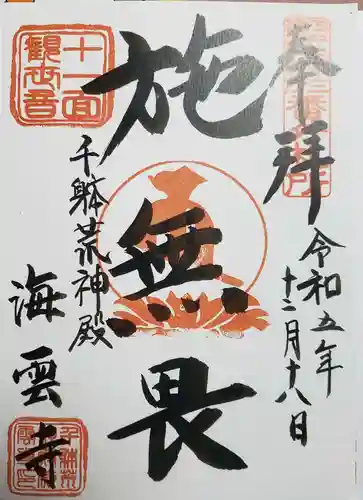 奉拝
令和五年
十二月十八日
施無畏
十一面
観世音
千躰荒神殿
海雲寺